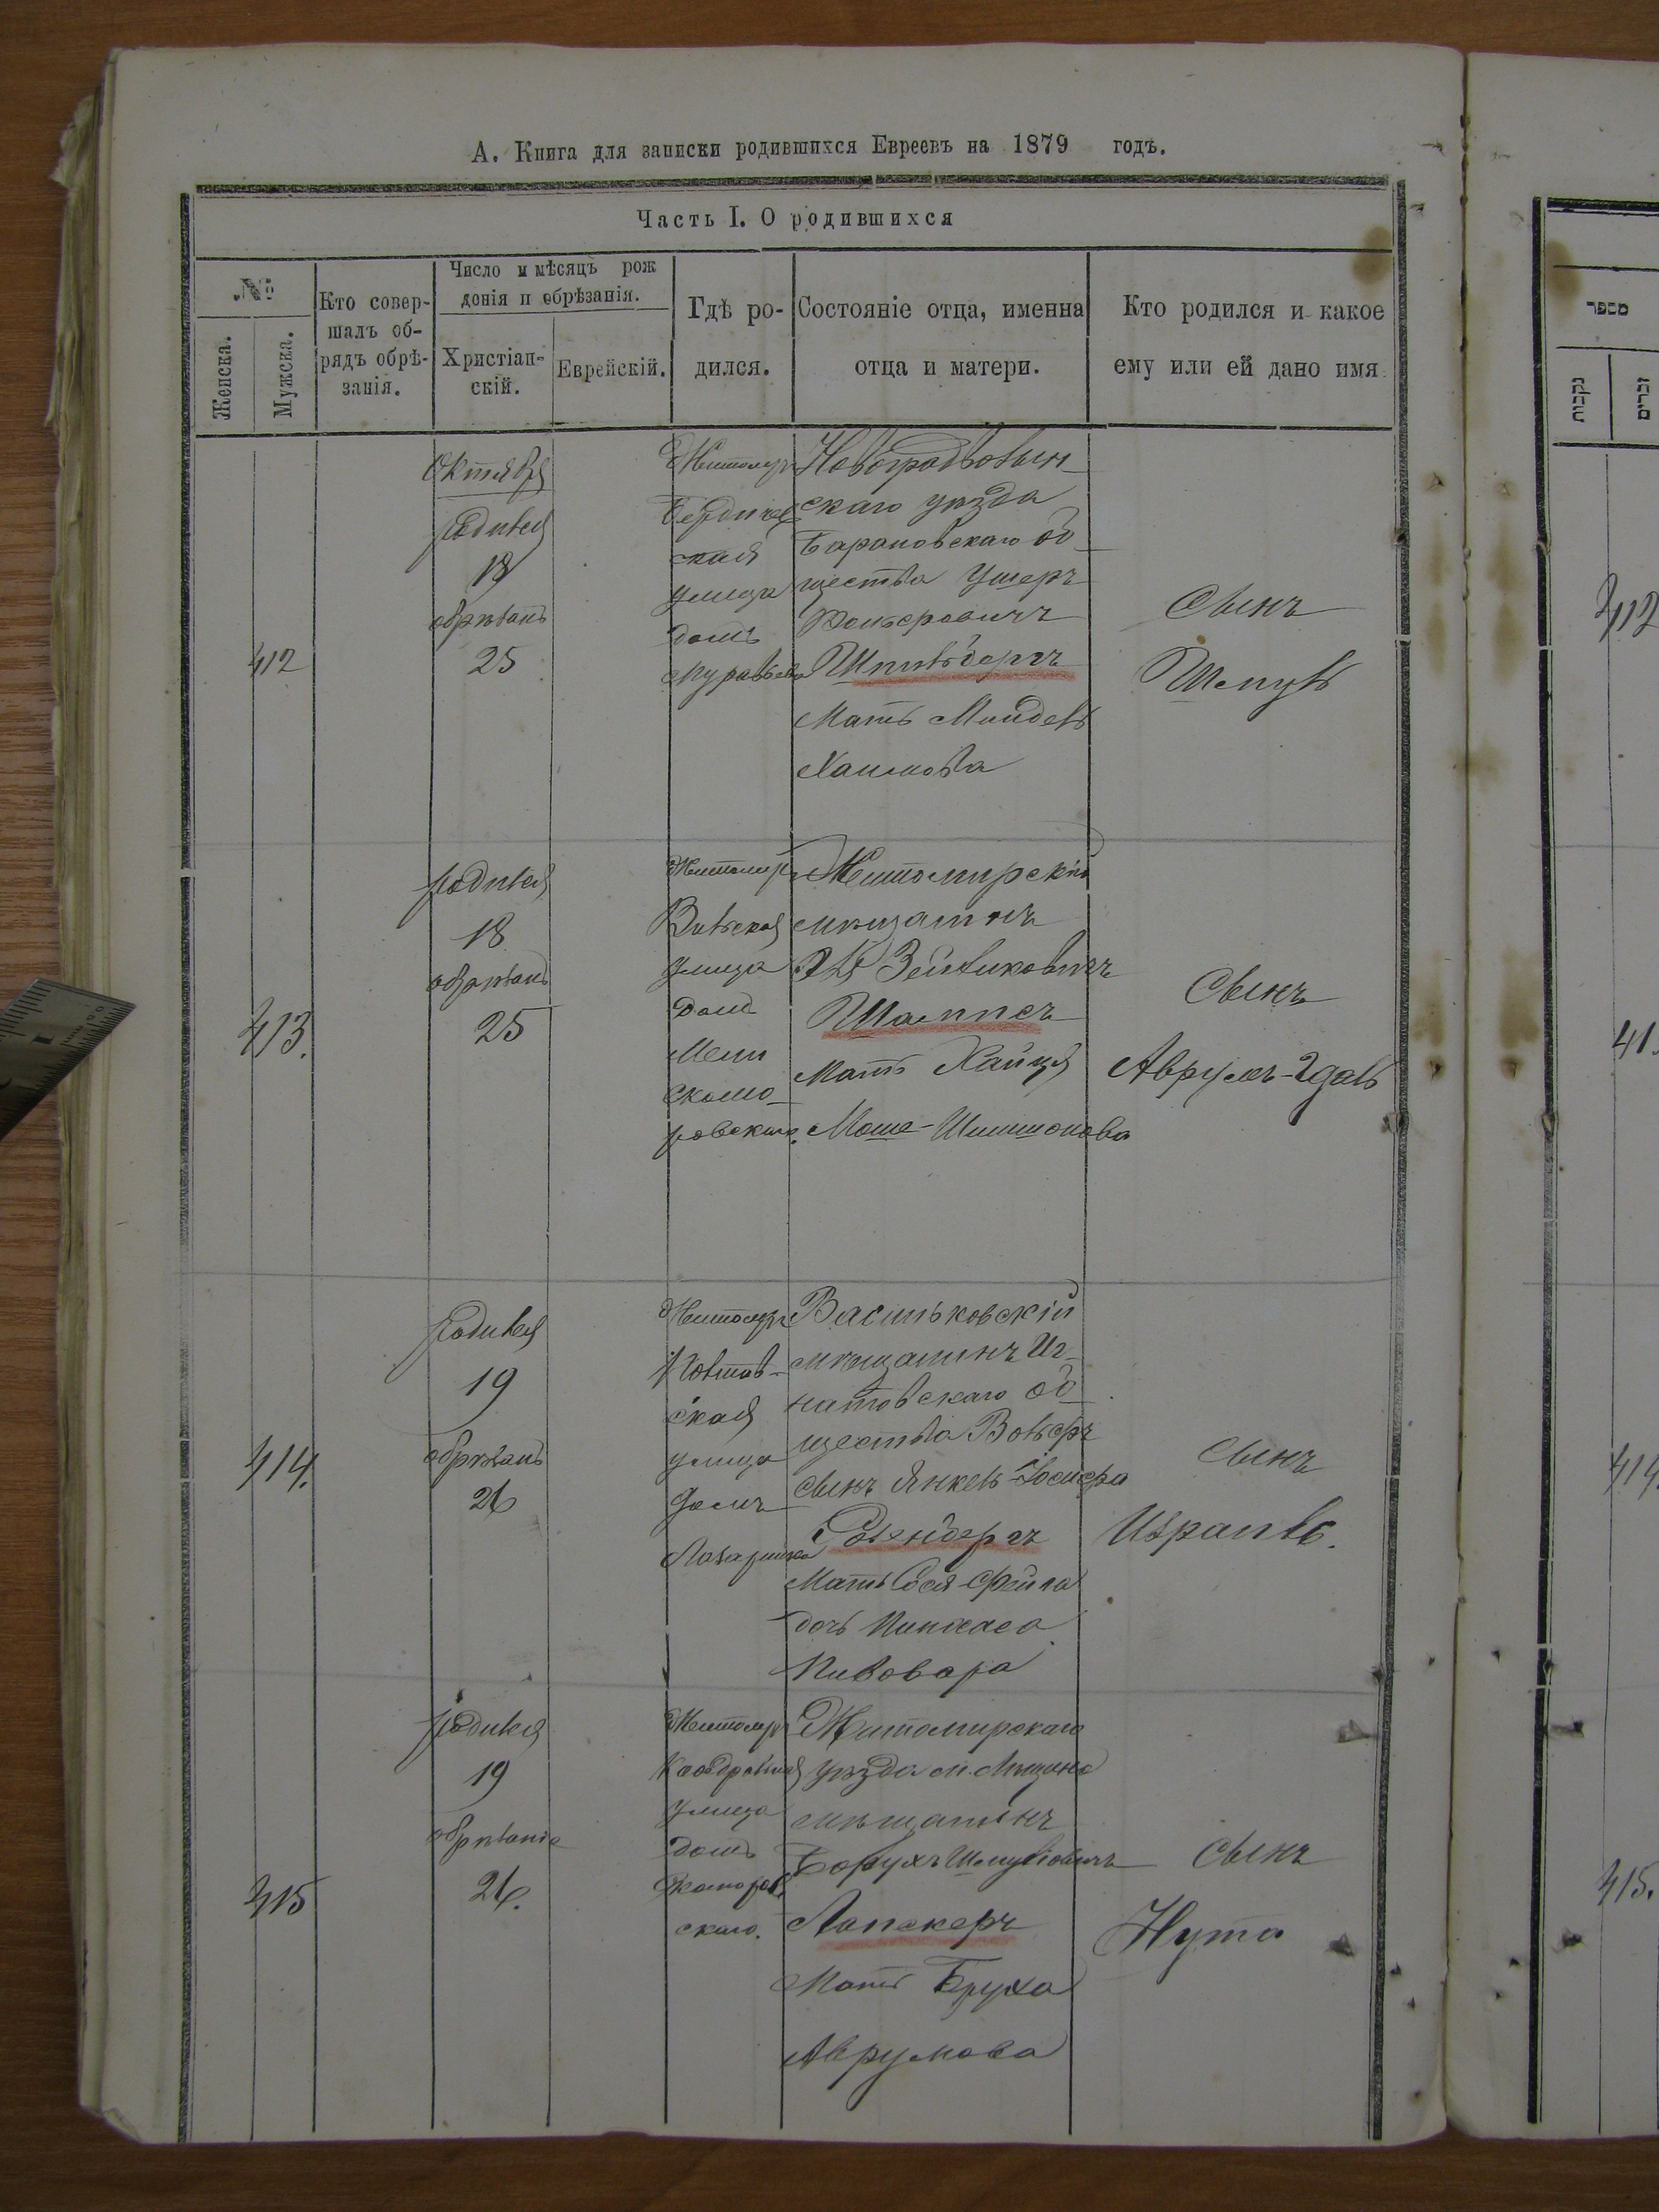 А. Книга для записки родившихся Евреевъ на 1879 годъ.
Часть I. О родившихся
№
Женска.
Мужска.
Кто совер-
шалъ об-
рядъ обрѣ-
занія.
Число и мѣсяцъ рож
донія и обрѣзанія.
Христіан-
скій.
Еврейскій.
Гдѣ ро-
дился.
Состояніе отца, именна
отца и матери.
Кто родился и какое
ему или ей дано имя
412
Октября
родился
18
обрѣзанъ
25
Житомиръ
Бердичев
ская
улица
домъ
Новоградволын-
скаго уѣзда
Барановскаго об-
щества Ушеръ
Шпильбергъ
Мать Миндель
Хаимова
Сынъ
Шмуль
413.
родился
18
обрѣзанъ
25
Житомиръ
Вильская
улица
домъ
Скомо-
ровскаго.
Житомирскій
мѣщанинъ
Зейликовичъ
Шаппсъ
Мать Хайця
Моше-Шимшонова
Сынъ
Аврумъ-Эдаль
414.
родился
19
обрѣзанъ
26
Житомиръ
ская
улица
домъ
Васильковскій
мѣщанинъ Иг-
натовскаго об-
щества Вольфъ
сынъ Янкель-Іосифа
Мать Бося-Фейга
дочь Пинхаса
Пивовара
Сынъ
Израиль.
415
родился
19
обрѣзаніе
26.
Житомиръ
Кафдральная
улица
домъ
Скоморов
скаго.
Житомирскаго
уѣзда м.
мѣщанинъ
Борухъ Шмуліовичъ
Лапскеръ
Мать Бруха
Аврумова
Сынъ
Нута
מספר
נקבות
זכרים
412
41
414
415.